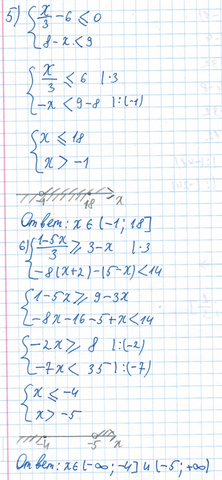 5) { x/3 - 6 ≤ 0
{ 8 - x < 9
{ x/3 ≤ 6 |·3
{ -x < 9-8 |:(-1)
{ x ≤ 18
{ x > -1
-1 18 x
Ответ: x∈(-1; 18]
6) { (1-5x)/3 ≥ 3-x |·3
{ -8(x+2)-(5-x)<14
{ 1-5x ≥ 9-3x
{ -8x-16-5+x<14
{ -2x ≥ 8 |:(-2)
{ -7x < 35 |:(-7)
{ x ≤ -4
{ x > -5
-4 -5 x
Ответ: x∈(-∞; -4] и (-5; +∞)